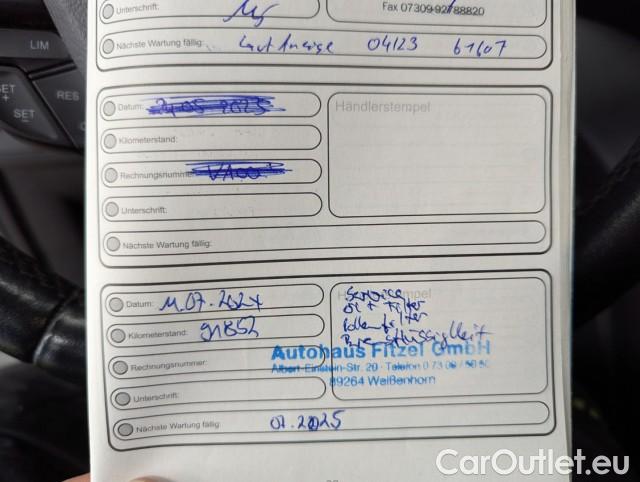 Unterschrift:
Fax 07309-92788820
Nächste Wartung fällig: laut Anzeige 04/23 61607
LIM
SET
+
RES
SET
Datum:
Händlerstempel
Kilometerstand:
Rechnungsnummer
Unterschrift:
Nächste Wartung fällig:
Datum: 11.07.2024
Service
Öl + Filter
Pollenfilter
Bremsflüssigkeit
Kilometerstand: 91852
Autohaus Fitzel GmbH
Rechnungsnummer:
Albert-Einstein-Str. 20 · Telefon 0 73 09 /
89264 Weißenhorn
Unterschrift:
Nächste Wartung fällig: 07.2025
CarOutlet.eu